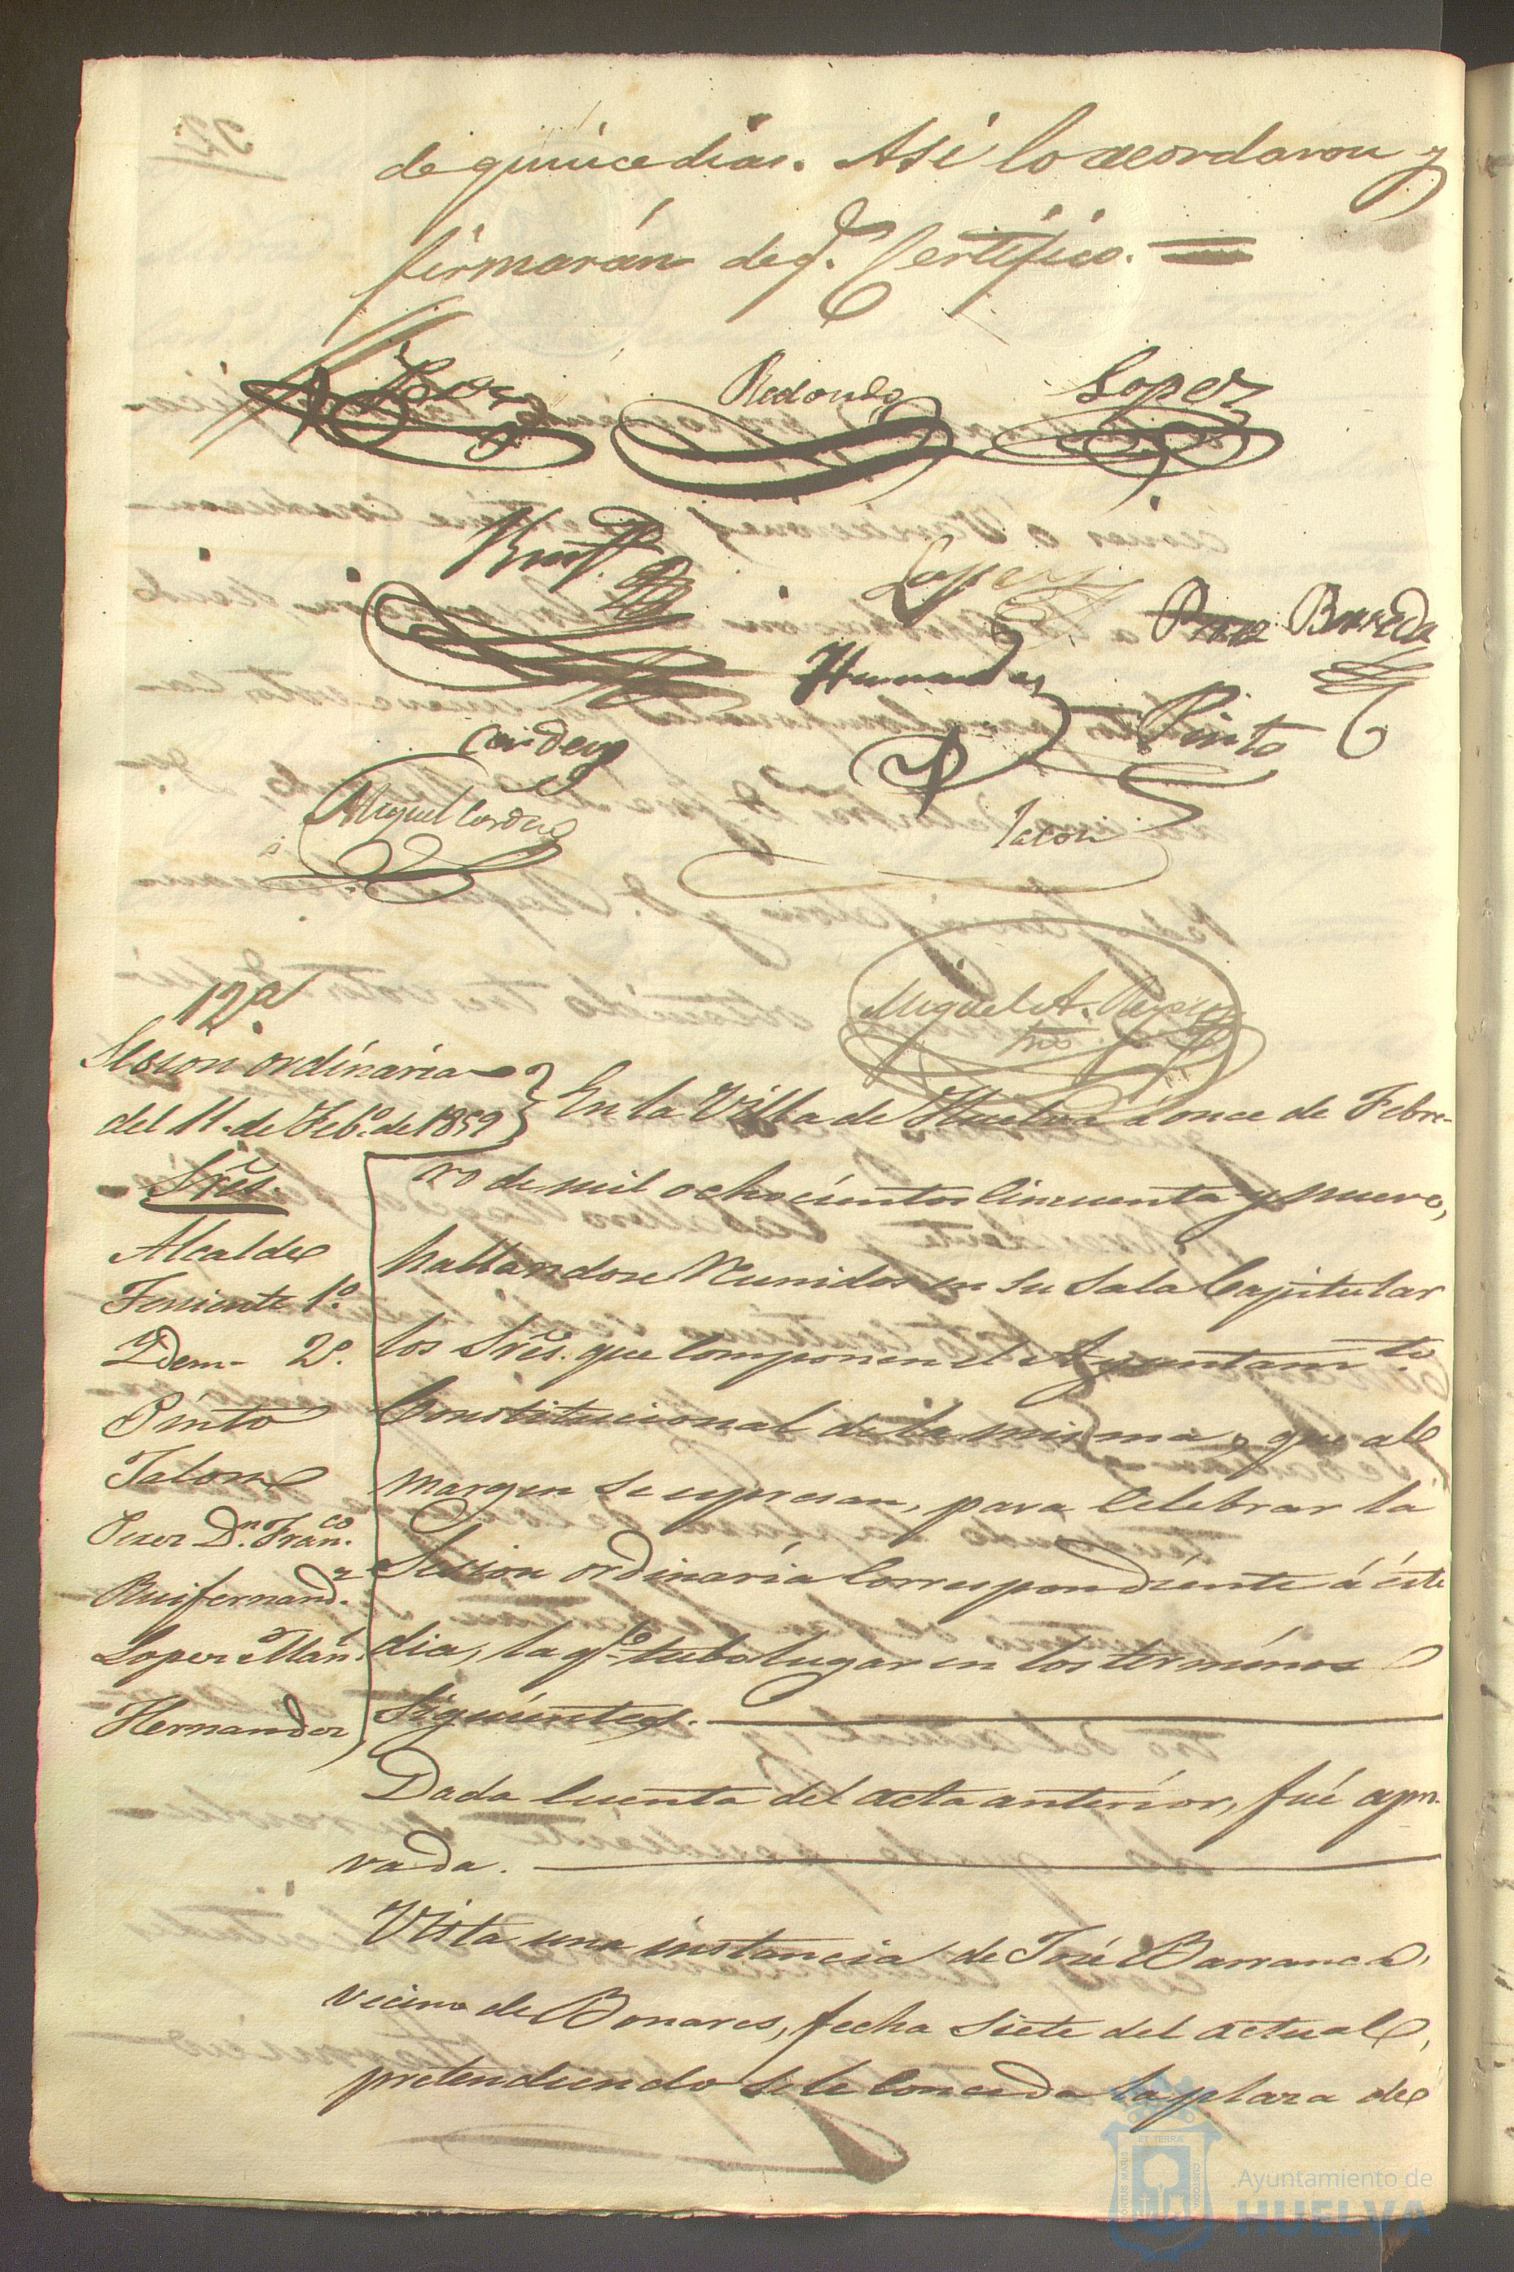 de quince dias. Asi lo acordaron y
firmarán de q.e Certifico. =
Redondo
Lopez
Lopez
Perez Barreda
Hernandez
Pinto
Cordero
Miguel Cordero
Talon
Miguel A.
12ª
Sesion ordinaria
del 11. de Feb.o de 1859
Sres.
Alcalde
Teniente 1.º
Idem 2.º
Pinto
Talon
Perez D.n Fran.co
Ruifernand.z
Lopez Man.l
Hernandez
En la Villa de Huelva á once de Febre-
ro de mil ochocientos cincuenta y nueve,
hallandose reunidos en su Sala Capitular
los Sres. que componen el Ayuntam.to
Constitucional de la misma, que al
margen se espresan, para celebrar la
Sesion ordinaria correspondiente á éste
dia, la q.e tubo lugar en los términos
siguientes.
Dada cuenta del acta anterior, fué apro-
vada.
Vista una instancia de José Barranca,
vecino de Bonares, fecha siete del actual,
pretendiendo se le conceda la plaza de
Ayuntamiento de
HUELVA